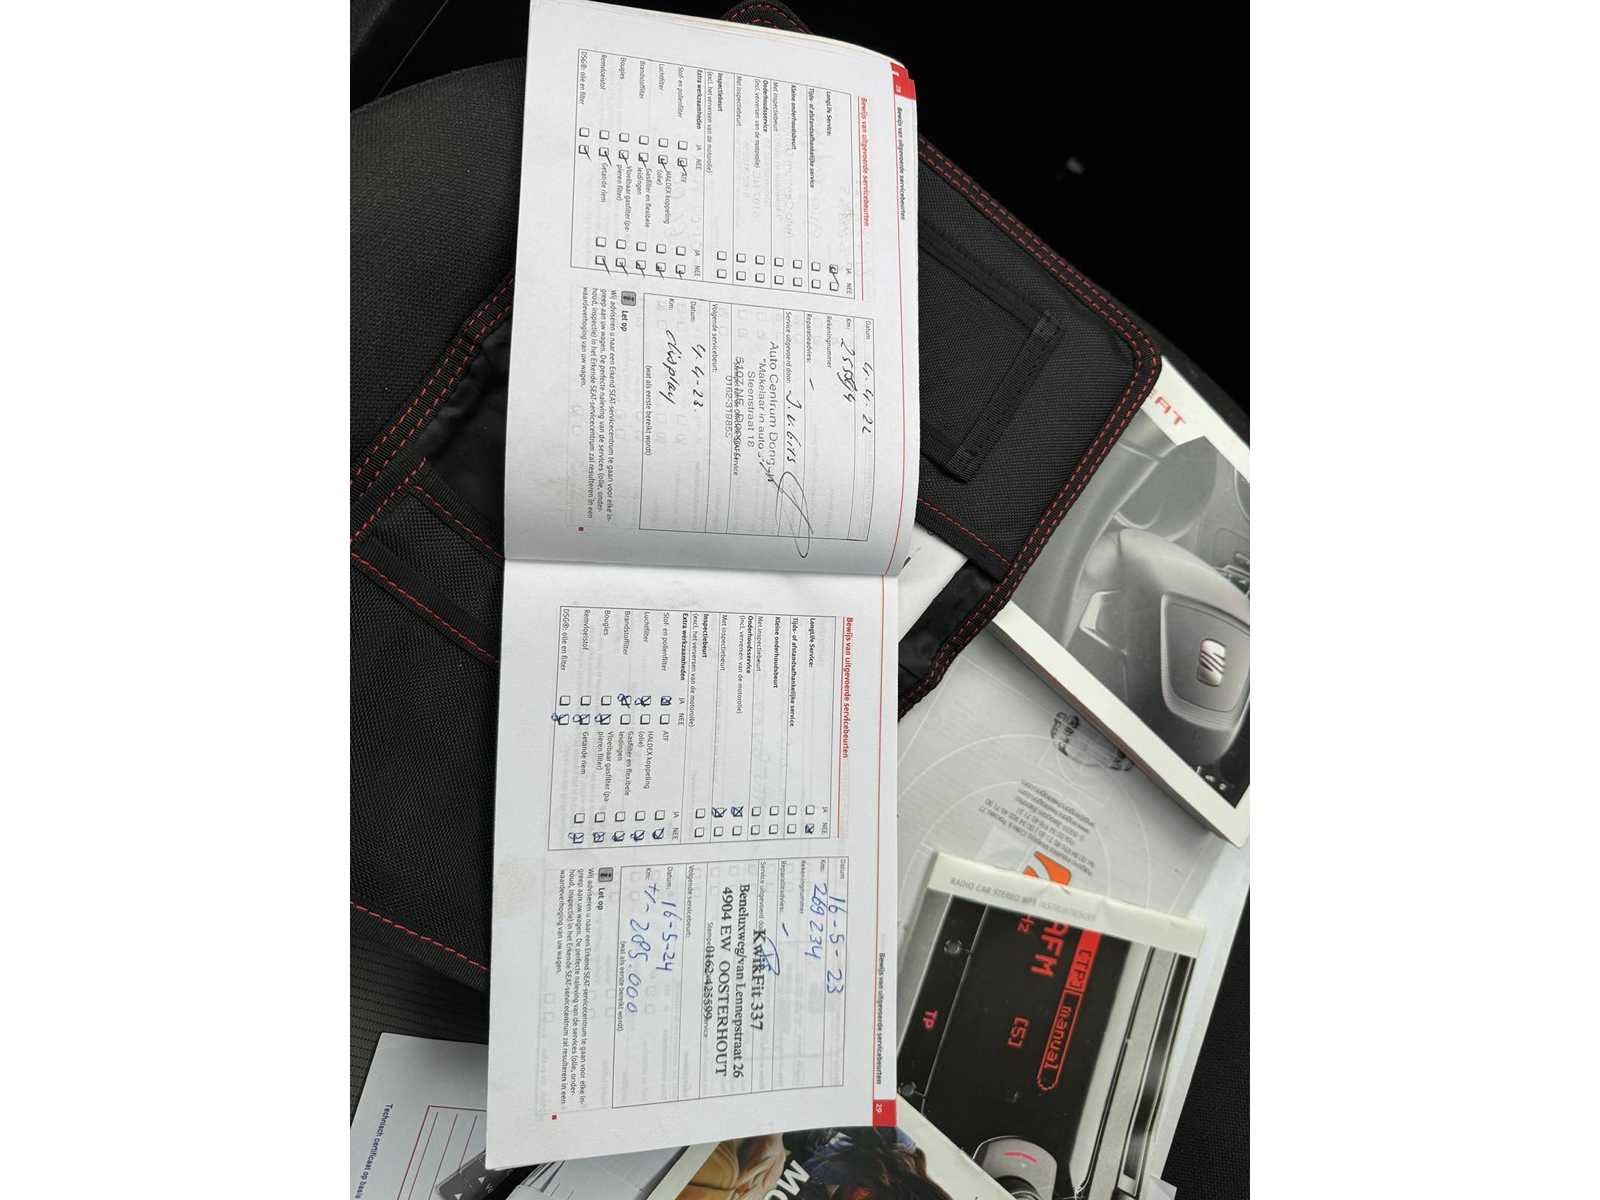 28
Bewijs van uitgevoerde servicebeurten
Bewijs van uitgevoerde servicebeurten
JA NEE
LongLife Service:
Tijds- of afstandsafhankelijke service
Kleine onderhoudsbeurt
Met inspectiebeurt
Onderhoudsservice
(incl. verversen van de motorolie)
Met inspectiebeurt
Inspectiebeurt
(excl. het verversen van de motorolie)
Extra werkzaamheden JA NEE JA NEE
Stof- en pollenfilter ATF
Luchtfilter HALDEX koppeling
(olie)
Brandstoffilter Gasfilter en flexibele
leidingen
Bougies Vloeibaar gasfilter (pa-
pieren filter)
Remvloeistof Getande riem
DSG®: olie en filter
Datum 4.4.22
Km:
Rekeningnummer
Reparatieadvies: -
Service uitgevoerd door:
Auto Centrum Dongen
"Makelaar in auto's"
Steenstraat 18
Volgende servicebeurt:
Datum: 4.4-23.
Km: display
(wat als eerste bereikt wordt)
i Let op
Wij adviseren u naar een Erkend SEAT-servicecentrum te gaan voor elke in-
greep aan uw wagen. De perfecte naleving van de services (olie, onder-
houd, inspectie) in het Erkende SEAT-servicecentrum zal resulteren in een
waardeverhoging van uw wagen.
Bewijs van uitgevoerde servicebeurten
29
Bewijs van uitgevoerde servicebeurten
JA NEE
LongLife Service:
Tijds- of afstandsafhankelijke service
Kleine onderhoudsbeurt
Met inspectiebeurt
Onderhoudsservice
(incl. verversen van de motorolie)
Met inspectiebeurt
Inspectiebeurt
(excl. het verversen van de motorolie)
Extra werkzaamheden JA NEE JA NEE
Stof- en pollenfilter ATF
Luchtfilter HALDEX koppeling
(olie)
Brandstoffilter Gasfilter en flexibele
leidingen
Bougies Vloeibaar gasfilter (pa-
pieren filter)
Remvloeistof Getande riem
DSG®: olie en filter
Datum 16-5-23
Km: 269234
Rekeningnummer
Reparatieadvies: -
Service uitgevoerd door:
KwikFit 337
Beneluxweg/van Lennepstraat 26
4904 EW OOSTERHOUT
0162-425599
Volgende servicebeurt:
Datum: 16-5-24
Km: +/- 285.000
(wat als eerste bereikt wordt)
i Let op
Wij adviseren u naar een Erkend SEAT-servicecentrum te gaan voor elke in-
greep aan uw wagen. De perfecte naleving van de services (olie, onder-
houd, inspectie) in het Erkende SEAT-servicecentrum zal resulteren in een
waardeverhoging van uw wagen.
SEAT
RADIO CAR STEREO MP3
AFM
Hz
[TP]
manual
[S]
TP
Technisch certificaat op basis
MO